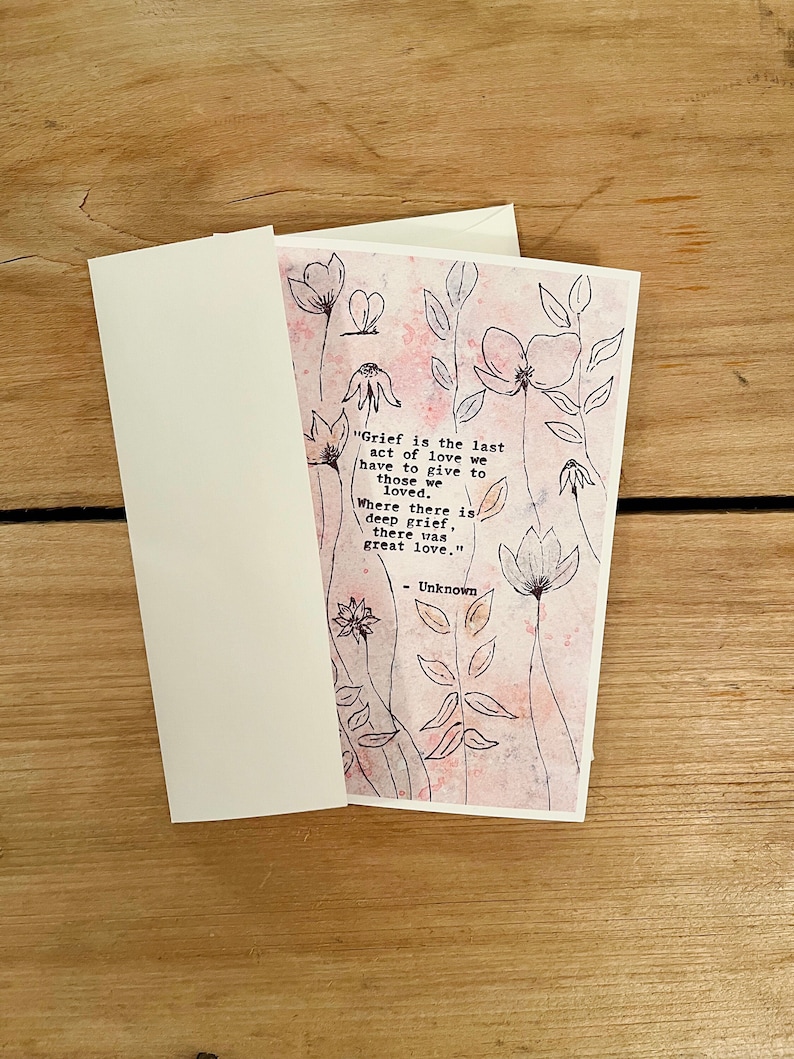 "Grief is the last
act of love we
have to give to
those we
loved.
Where there is
deep grief,
there was
great love."
- Unknown